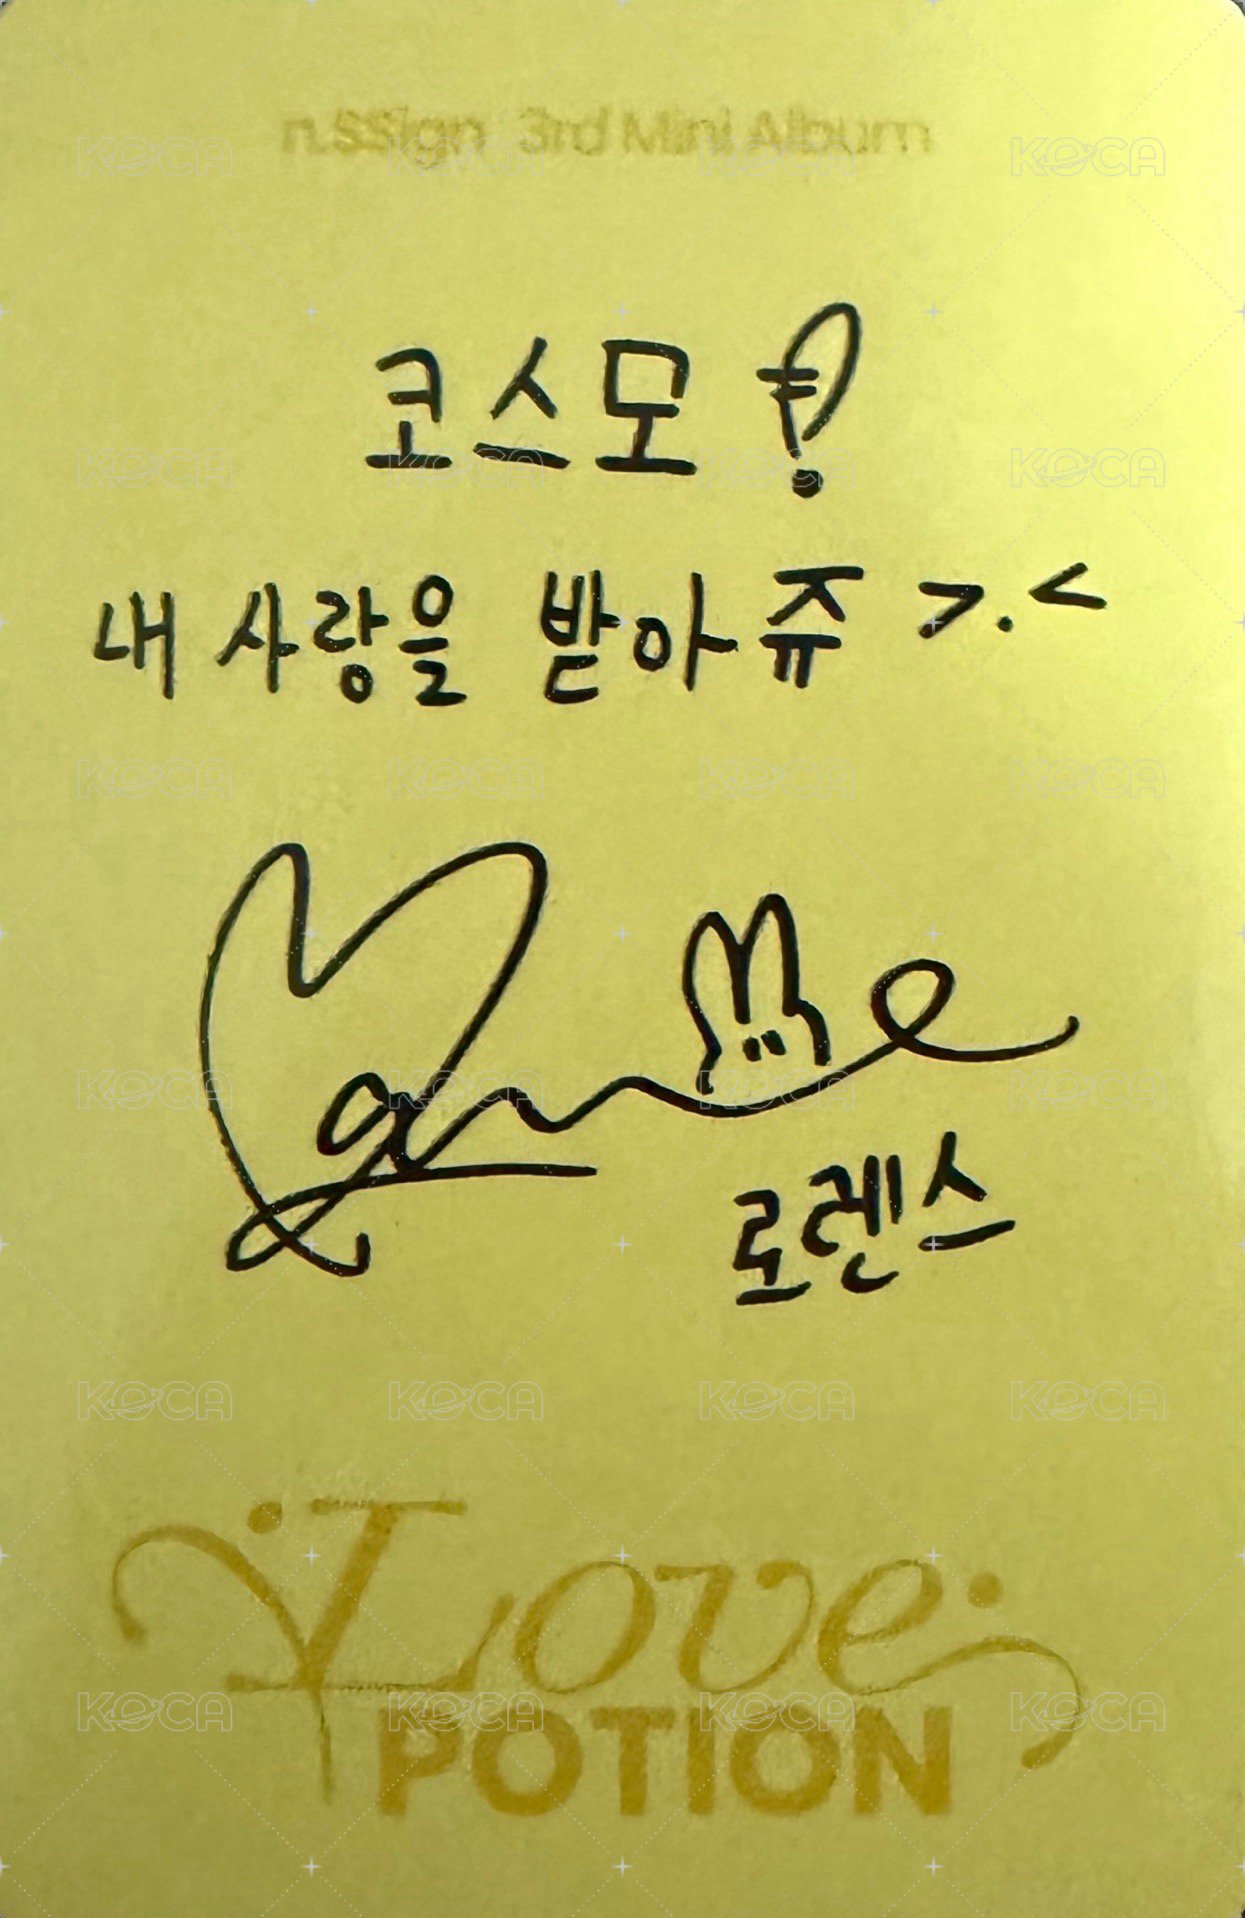 n.SSign 3rd Mini Album
코스모!
내 사랑을 받아쥬 >.<
로렌스
Love
POTION
KOCA